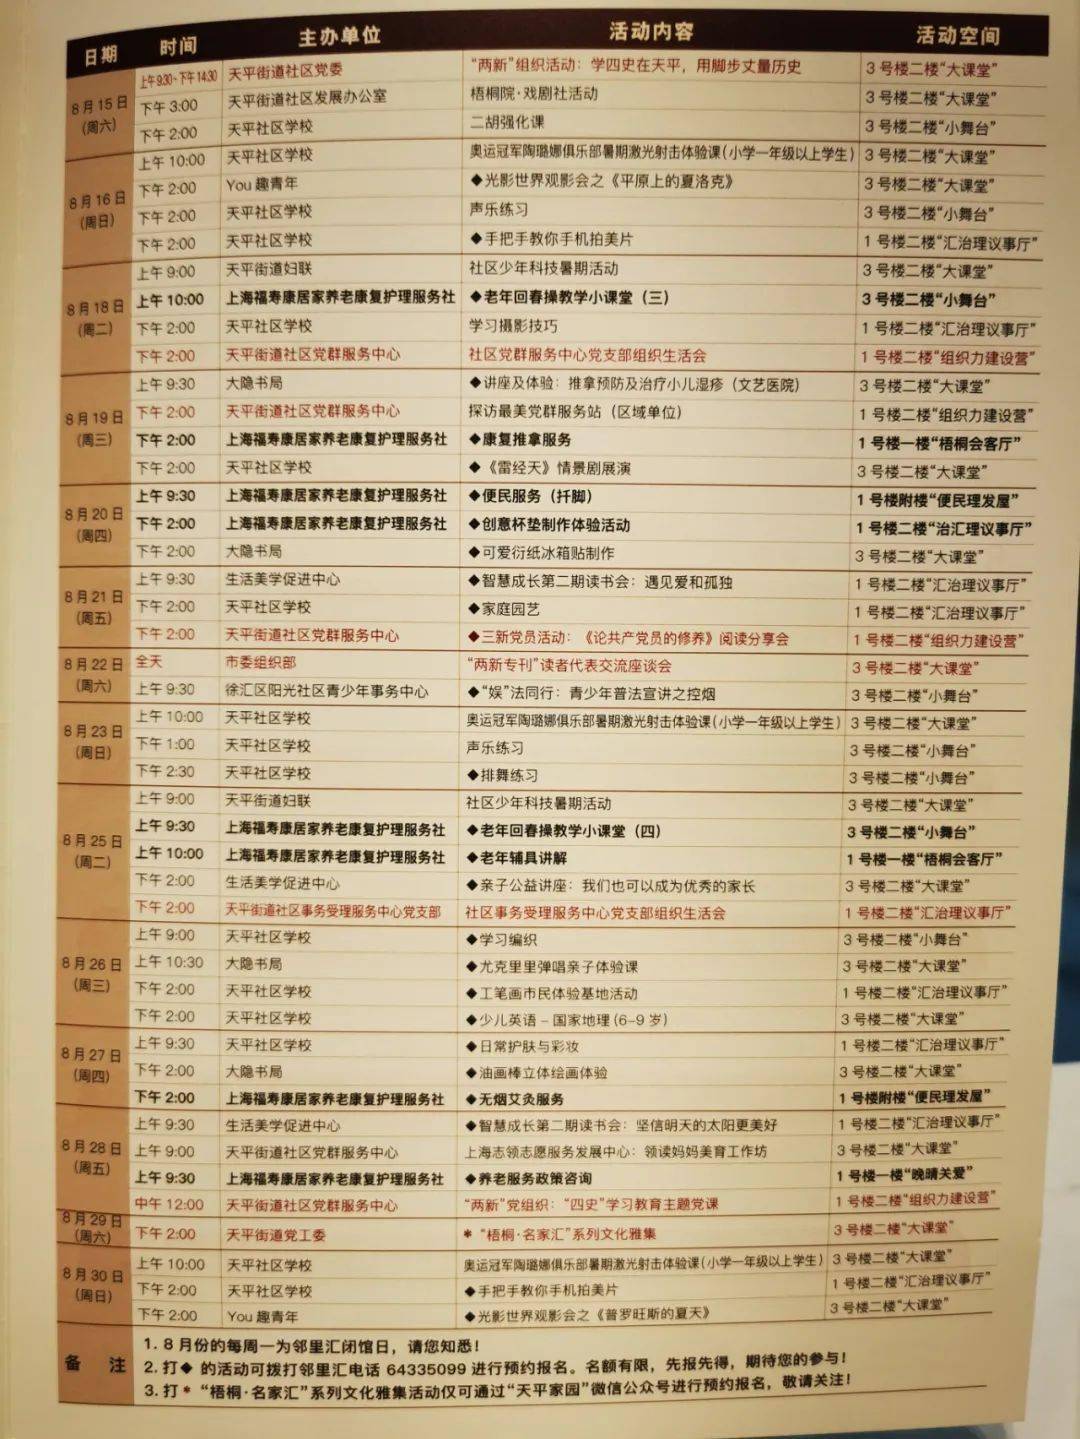 日期 时间 主办单位 活动内容 活动空间
8月15日 (周六)
上午9:30-下午14:30 天平街道社区党委 “两新”组织活动：学四史在天平，用脚步丈量历史 3号楼二楼“大课堂”
下午3:00 天平街道社区发展办公室 梧桐院·戏剧社活动 3号楼二楼“大课堂”
下午2:00 天平社区学校 二胡强化课 3号楼二楼“小舞台”
8月16日 (周日)
上午10:00 天平社区学校 奥运冠军陶璐娜俱乐部暑期激光射击体验课(小学一年级以上学生) 3号楼二楼“大课堂”
下午2:00 You趣青年 ◆光影世界观影会之《平原上的夏洛克》 3号楼二楼“大课堂”
下午2:00 天平社区学校 声乐练习 3号楼二楼“小舞台”
下午2:00 天平社区学校 ◆手把手教你手机拍美片 1号楼二楼“汇治理议事厅”
8月18日 (周二)
上午9:00 天平街道妇联 社区少年科技暑期活动 3号楼二楼“大课堂”
上午10:00 上海福寿康居家养老康复护理服务社 ◆老年回春操教学小课堂（三） 3号楼二楼“小舞台”
下午2:00 天平社区学校 学习摄影技巧 1号楼二楼“汇治理议事厅”
下午2:00 天平街道社区党群服务中心 社区党群服务中心党支部组织生活会 1号楼二楼“组织力建设营”
8月19日 (周三)
上午9:30 大隐书局 ◆讲座及体验：推拿预防及治疗小儿湿疹（文艺医院） 3号楼二楼“大课堂”
下午2:00 天平街道社区党群服务中心 探访最美党群服务站（区域单位） 1号楼二楼“组织力建设营”
下午2:00 上海福寿康居家养老康复护理服务社 ◆康复推拿服务 1号楼一楼“梧桐会客厅”
下午2:00 天平社区学校 ◆《雷经天》情景剧展演 3号楼二楼“大课堂”
8月20日 (周四)
上午9:30 上海福寿康居家养老康复护理服务社 ◆便民服务（扦脚） 1号楼附楼“便民理发屋”
下午2:00 上海福寿康居家养老康复护理服务社 ◆创意杯垫制作体验活动 1号楼二楼“治汇理议事厅”
下午2:00 大隐书局 ◆可爱衍纸冰箱贴制作 3号楼二楼“大课堂”
8月21日 (周五)
上午9:30 生活美学促进中心 ◆智慧成长第二期读书会：遇见爱和孤独 1号楼二楼“汇治理议事厅”
下午2:00 天平社区学校 ◆家庭园艺 1号楼二楼“汇治理议事厅”
下午2:00 天平街道社区党群服务中心 ◆三新党员活动：《论共产党员的修养》阅读分享会 1号楼二楼“组织力建设营”
8月22日 (周六)
全天 市委组织部 “两新专刊”读者代表交流座谈会 3号楼二楼“大课堂”
上午9:30 徐汇区阳光社区青少年事务中心 ◆“娱”法同行：青少年普法宣讲之控烟 3号楼二楼“小舞台”
8月23日 (周日)
上午10:00 天平社区学校 奥运冠军陶璐娜俱乐部暑期激光射击体验课(小学一年级以上学生) 3号楼二楼“大课堂”
下午1:00 天平社区学校 声乐练习 3号楼二楼“小舞台”
下午2:30 天平社区学校 ◆排舞练习 3号楼二楼“小舞台”
8月25日 (周二)
上午9:00 天平街道妇联 社区少年科技暑期活动 3号楼二楼“大课堂”
上午9:30 上海福寿康居家养老康复护理服务社 ◆老年回春操教学小课堂（四） 3号楼二楼“小舞台”
上午10:00 上海福寿康居家养老康复护理服务社 ◆老年辅具讲解 1号楼一楼“梧桐会客厅”
下午2:00 生活美学促进中心 ◆亲子公益讲座：我们也可以成为优秀的家长 3号楼二楼“大课堂”
下午2:00 天平街道社区事务受理服务中心党支部 社区事务受理服务中心党支部组织生活会 1号楼二楼“汇治理议事厅”
8月26日 (周三)
上午9:00 天平社区学校 ◆学习编织 3号楼二楼“小舞台”
上午10:30 大隐书局 ◆尤克里里弹唱亲子体验课 3号楼二楼“大课堂”
下午2:00 天平社区学校 ◆工笔画市民体验基地活动 1号楼二楼“汇治理议事厅”
下午2:00 天平社区学校 ◆少儿英语－国家地理(6-9岁) 3号楼二楼“大课堂”
8月27日 (周四)
上午9:30 天平社区学校 ◆日常护肤与彩妆 1号楼二楼“汇治理议事厅”
下午2:00 大隐书局 ◆油画棒立体绘画体验 3号楼二楼“大课堂”
下午2:00 上海福寿康居家养老康复护理服务社 ◆无烟艾灸服务 1号楼附楼“便民理发屋”
8月28日 (周五)
上午9:30 生活美学促进中心 ◆智慧成长第二期读书会：坚信明天的太阳更美好 1号楼二楼“汇治理议事厅”
上午9:00 天平社区学校 上海志领志愿服务发展中心：领读妈妈美育工作坊 3号楼二楼“大课堂”
上午9:30 上海福寿康居家养老康复护理服务社 ◆养老服务政策咨询 1号楼一楼“晚晴关爱”
中午12:00 天平街道社区党群服务中心 “两新”党组织：“四史”学习教育主题党课 1号楼二楼“组织力建设营”
8月29日 (周六)
下午2:00 天平街道党工委 * “梧桐·名家汇”系列文化雅集 3号楼二楼“大课堂”
8月30日 (周日)
上午10:00 天平社区学校 奥运冠军陶璐娜俱乐部暑期激光射击体验课(小学一年级以上学生) 3号楼二楼“大课堂”
下午2:00 天平社区学校 ◆手把手教你手机拍美片 1号楼二楼“汇治理议事厅”
下午2:00 You趣青年 ◆光影世界观影会之《普罗旺斯的夏天》 3号楼二楼“大课堂”
备 注
1. 8月份的每周一为邻里汇闭馆日，请您知悉！
2. 打◆的活动可拨打邻里汇电话 64335099 进行预约报名。名额有限，先报先得，期待您的参与！
3. 打 * “梧桐·名家汇”系列文化雅集活动仅可通过“天平家园”微信公众号进行预约报名，敬请关注！